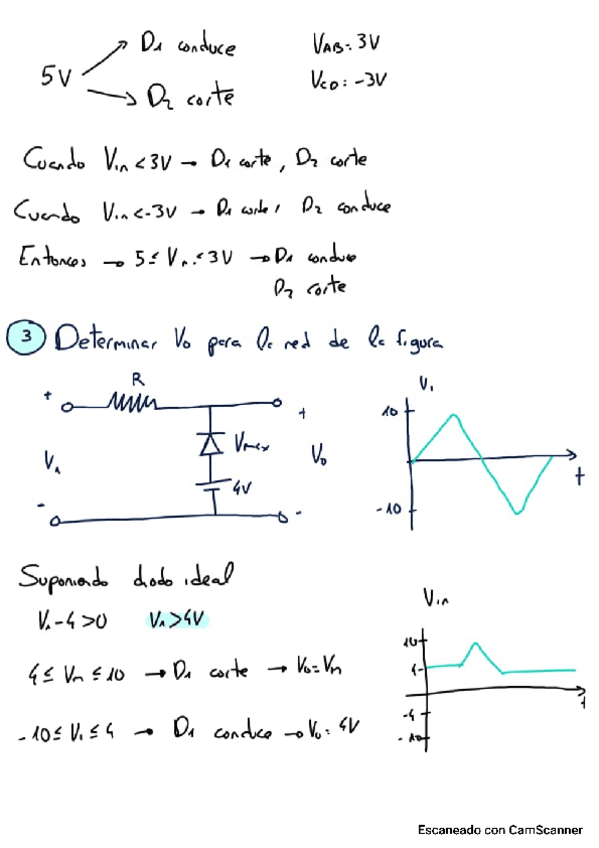 5V
D1 conduce
D2 corte
VAB: 3V
VCD: -3V
Cuando Vin < 3V → D1 corte, D2 corte
Cuando Vin < -3V → D1 corte, D2 conduce
Entonces → 5 ≤ Vi ≤ 3V → D1 conduce
D2 corte
3 Determinar Vo para la red de la figura
R
+
+
V1
Vo
4V
-
-
Vi
10
-10
t
Suponiendo diodo ideal
Vi - 4 > 0 Vi > 4V
4 ≤ Vin ≤ 10 → D1 corte → Vo = Vin
-10 ≤ Vi ≤ 4 → D1 conduce → Vo: 4V
Vin
10
4
-4
-10
t
Escaneado con CamScanner